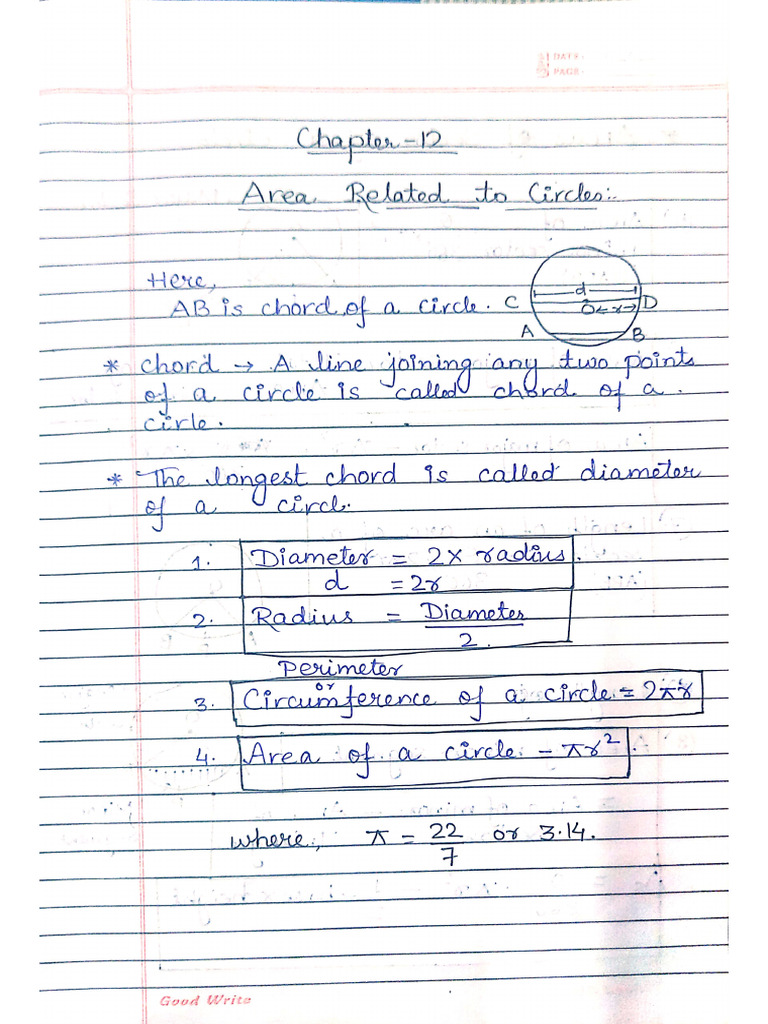 DATE:
PAGE:
Chapter-12
Area Related to Circles:-
Here,
AB is chord of a circle.
C d D
O r
A B
* chord → A line joining any two points
of a circle is called chord of a
cirle.
* The longest chord is called diameter
of a circle.
1. Diameter = 2 x radius.
d = 2r
2. Radius = Diameter
2.
Perimeter
or
3. Circumference of a circle = 2πr
4. Area of a circle = πr².
where, π = 22/7 or 3.14.
Good Write